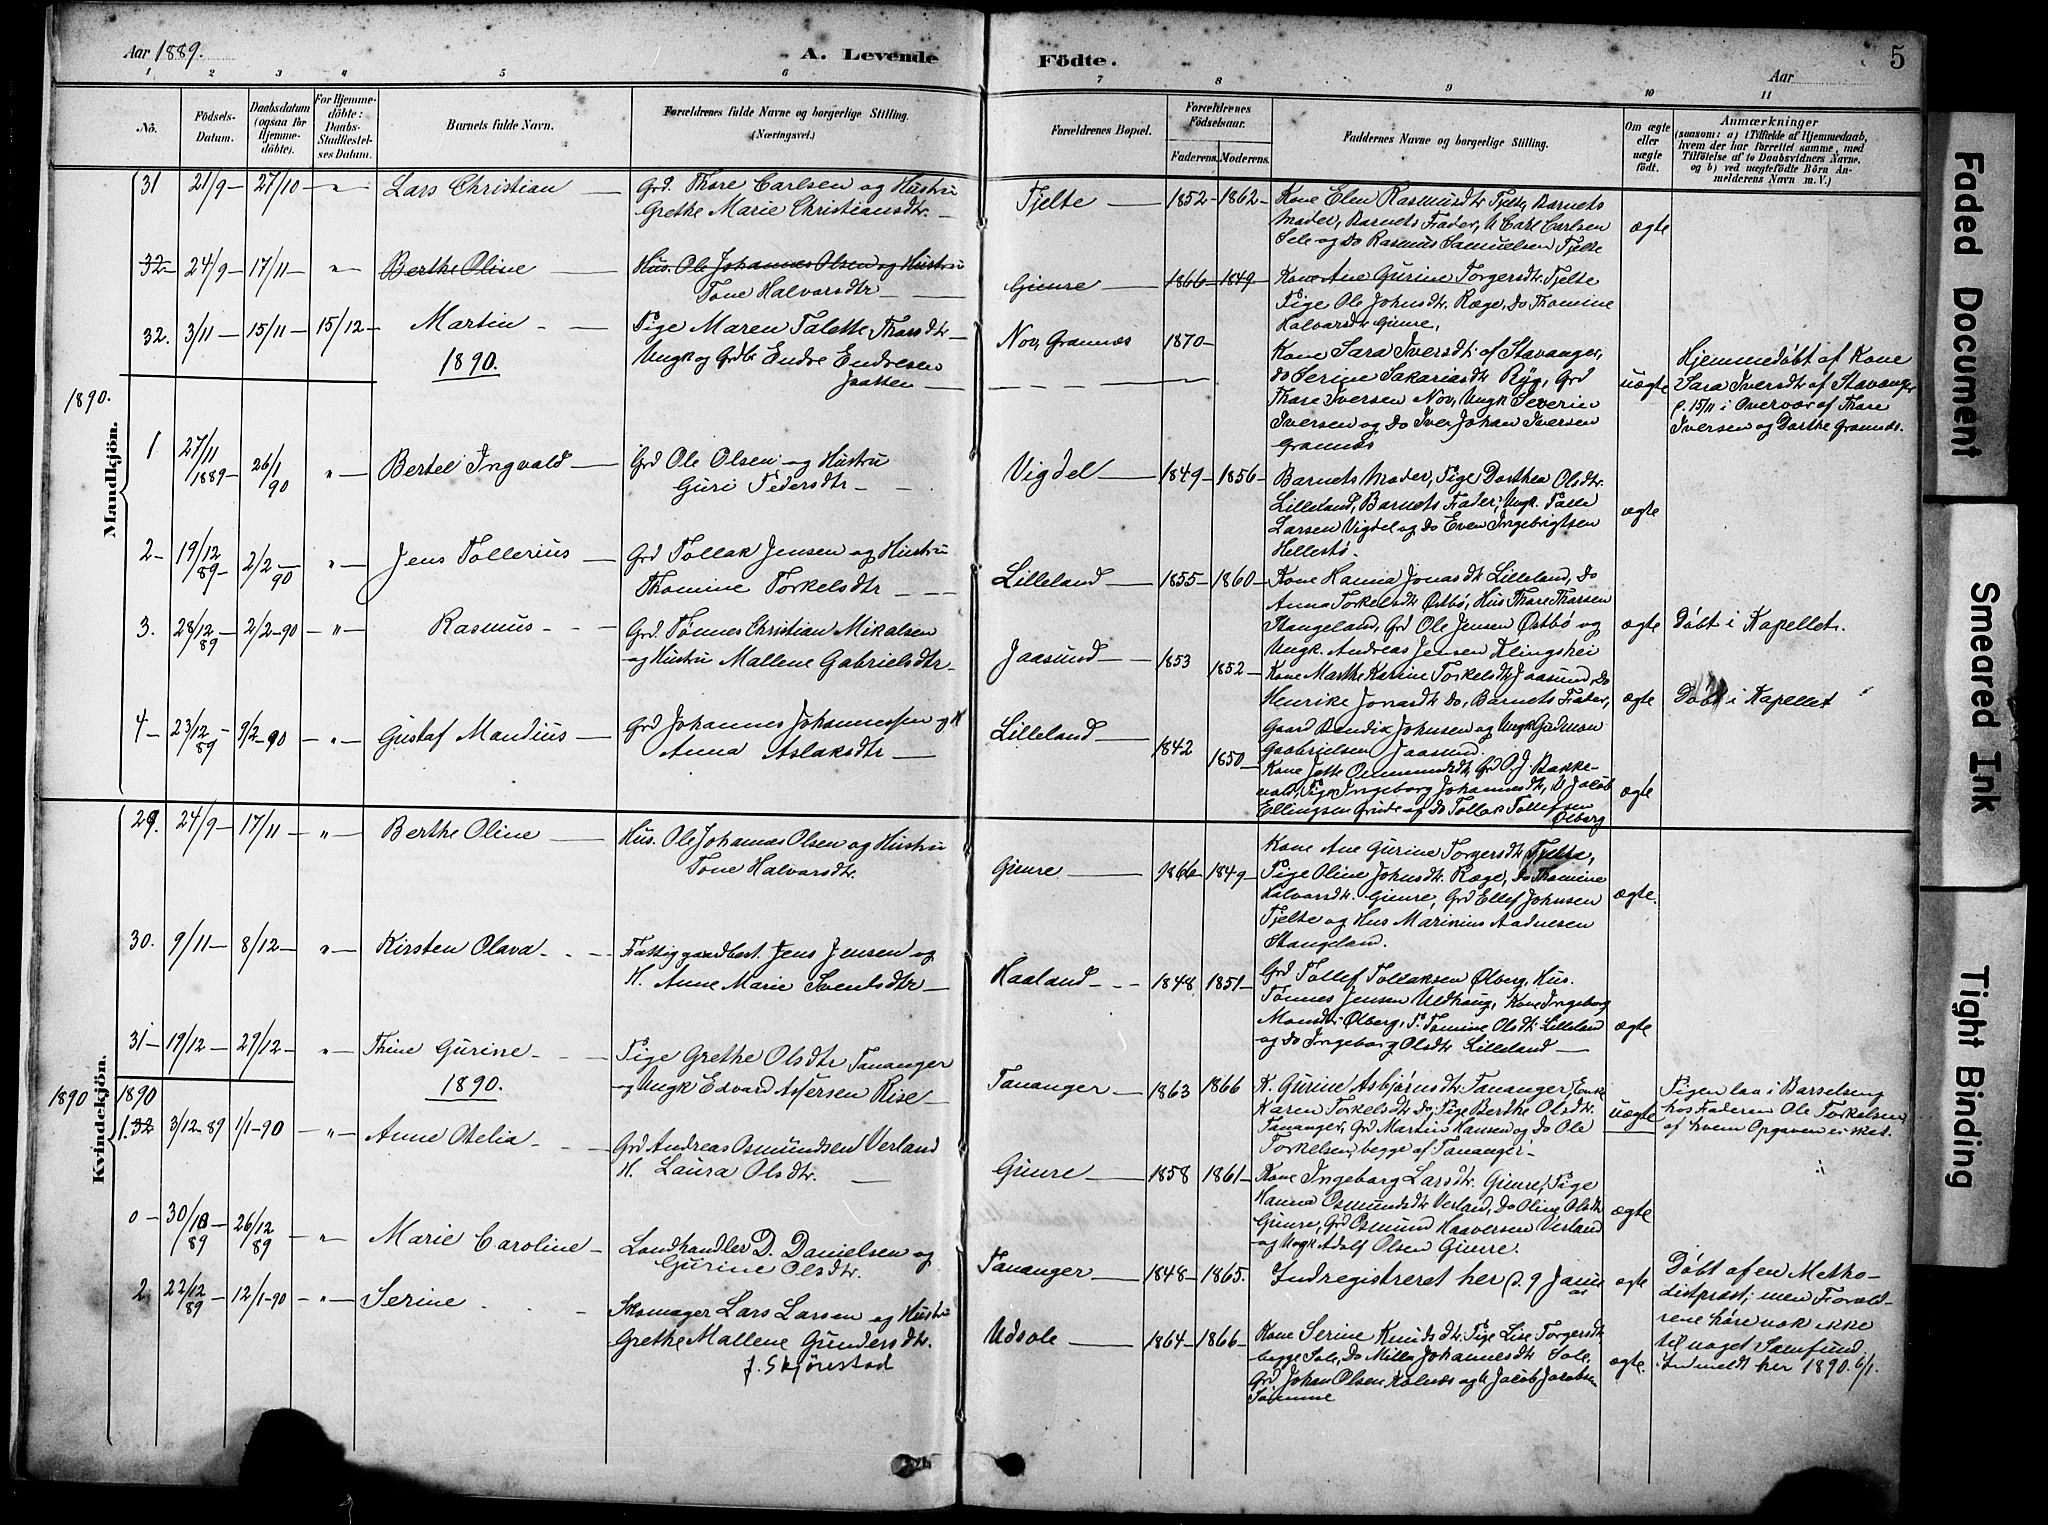 Aar 1889.
A. Levende
Födte.
Aar
5
1 2 3 4 5 6 7 8 9 10 11
No.
Födsels-Datum.
Daabsdatum (ogsaa for Hjemme-döbte).
For Hjemme-döbte: Daabs-Stadfæstel-ses Datum.
Barnets fulde Navn.
Forældrenes fulde Navne og borgerlige Stilling. (Næringsvei.)
Forældrenes Bopæl.
Forældrenes Födselsaar.
Faderens. Moderens.
Faddernes Navne og borgerlige Stilling.
Om ægte eller uægte födt.
Anmærkninger
(saasom: a) i Tilfælde af Hjemmedaab,
hvem der har forrettet samme, med
Tilföielse af to Daabsvidners Navne.
og b) ved uægtefödte Börn An-
melderens Navn m. V.)
Mandkjön.
31 21/9 27/10 " Lars Christian
Grd. Thore Carlsen og Hustru
Grethe Marie Christiansdtr.
Tjelte 1852 1862
Kone Elen Rasmusdtr Tjelte, Barnets
Moder, Barnets Fader, U Carl Carlsen
Sele og Do Rasmus Samuelsen Tjelte
ægte
32 24/9 17/11 " Berthe Oline
Hus. Ole Johannes Olsen og Hustru
Tone Halvorsdtr
Gimre 1866 1849
Kone Ane Gurine Torgersdtr. Tjelte
Pige Ole Johnsdtr. Ræge, Do Thomine
Halvorsdtr Gimre,
32. 3/11 15/11 15/12 Martin
1890.
Pige Maren Talette Thorsdtr
Ungk og Grdb Endre Endresen
Jaatten
Nov, Grannæs 1870
Kone Sara Iversdtr. af Stavanger,
Do Serine Sakariasdtr Ryg, Grd
Thore Iversen Nov, Ungk Severin
Iversen og Do Iver Johan Iversen
Grannæs
uægte
Hjemmedøbt af Kone
Sara Iversdtr af Stavanger
d. 15/11 i Overvær af Thore
Iversen og Dorthe Grannæs.
1890.
1 27/11 1889 26/1 90 " Bertel Ingvald
Grd Ole Olsen og Hustru
Guri Pedersdtr
Vigdel 1849 1856
Barnets Moder, Pige Dorthea Olsdtr.
Lilleland, Barnets Fader, Ungk. Palle
Larsen Vigdel og Do Even Ingebrigtsen
Hellestø.
ægte
2 19/12 89 2/2 90 " Jens Tollerius
Grd Tollak Jensen og Hustru
Thomine Torkelsdtr
Lilleland 1855 1860
Kone Hanna Jonasdtr Lilleland, Do
Anna Torkelsdtr Østbø, Hus Thore Thorsen
Stangeland, Grd Ole Jensen Østbø og
Ungk. Andreas Jensen Klingshei
ægte Døbt i Kapellet.
3. 28/12 89 2/2-90 " Rasmus
Grd. Tønnes Christian Mikalsen
og Hustru Mallene Gabrielsdtr
Jaasund 1853 1852
Kone Marthe Karine Torkelsdtr Jaasund, Do
Henrike Jonasdtr Do, Barnets Fader,
Gaard Bendix Johnsen og Ungk Gudmon
Gaabrielsen Jaasund.
ægte Døbt i Kapellet
4 23/12 89 9/2-90 " Gustaf Mandius
Grd Johannes Johannessen og H
Anna Aslaksdtr
Lilleland 1842 1850
Kone Jette Ommundsdtr, Grd O J Bakke-
vold, Pige Ingeborg Johannesdtr, U Jacob
Ellingsen Grude og Do Tollak Tollefsen
Ølberg
ægte
1890
Kvindekjön.
29. 24/9 17/11 " Berthe Oline
Hus. Ole Johannes Olsen og Hustru
Tone Halvorsdtr.
Gimre 1866 1849
Kone Ane Gurine Torgersdtr. Tjelte,
Pige Oline Johnsdtr. Ræge, Do Thomine
Halvorsdtr. Gimre, Grd Ellef Johnsen
Tjelte og Hus Marinius Aadnesen
Stangeland.
ægte.
30. 9/11 8/12 " Kirsten Olava
Fattiggaardbest. Jens Jensen og
H. Anne Marie Svendsdtr
Haaland 1848 1851
Grd Tollef Tollaksen Ølberg, Hus.
Tønnes Jensen Uldhaug, Kone Ingeborg
Monsdtr Ølberg, P. Tomine Olsdtr. Lilleland
og Do Ingeborg Olsdtr Lilleland
ægte
31 19/12 29/12 " Thine Gurine
1890.
Pige Grethe Olsdtr Tananger
og Ungk Edvard Assersen Rise
Tananger 1863 1866
K. Gurine Asbjørnsdtr. Tananger Enke
Karen Torkelsdtr Do, Pige Berthe Olsdtr.
Tananger, Grd Martin Hansen og Do Ole
Torkelsen, begge af Tananger
uægte
Pigen laa i Barselseng
hos Faderen Ole Torkelsen,
af hvem Opgaven er sket.
1890
1. 32 3/12-89 1/1-90 " Anne Otelia
Grd Andreas Osmundsen Verland
H. Laura Olsdtr.
Gimre 1858 1861
Kone Ingeborg Larsdtr. Gimre, Pige
Hanna Osmundsdtr Verland, Do Oline Olsdtr
Gimre, Grd Osmund Haaversen Verland
og Ungk Adolf Olsen Gimre.
ægte
0 30/10 89 26/12 89 " Marie Caroline
Landhandler D. Danielsen og
Gurine Olsdtr.
Tananger 1848 1865.
Indregistreret her d. 9 Janu
ar
ægte
Døbt af en Metho-
distpræst; men Foræld-
rene høre nok ikke
til noget Samfund.
Indmeldt her 1890. 6/1.
2 22/12 89 12/1-90 " Serine
Skomager Lars Larsen og Hustru
Grethe Mallene Gundersdtr.
f. Skjørestad
Udsole 1864 1866
Kone Serine Knudsdtr. Pige Lise Torgersdtr
begge Sole, Do Milla Johannesdtr Sole,
Grd Johan Olsen Kolnæs og U Jacob Jacobsen
Sømme
ægte.
Faded Document
Smeared Ink
Tight Binding